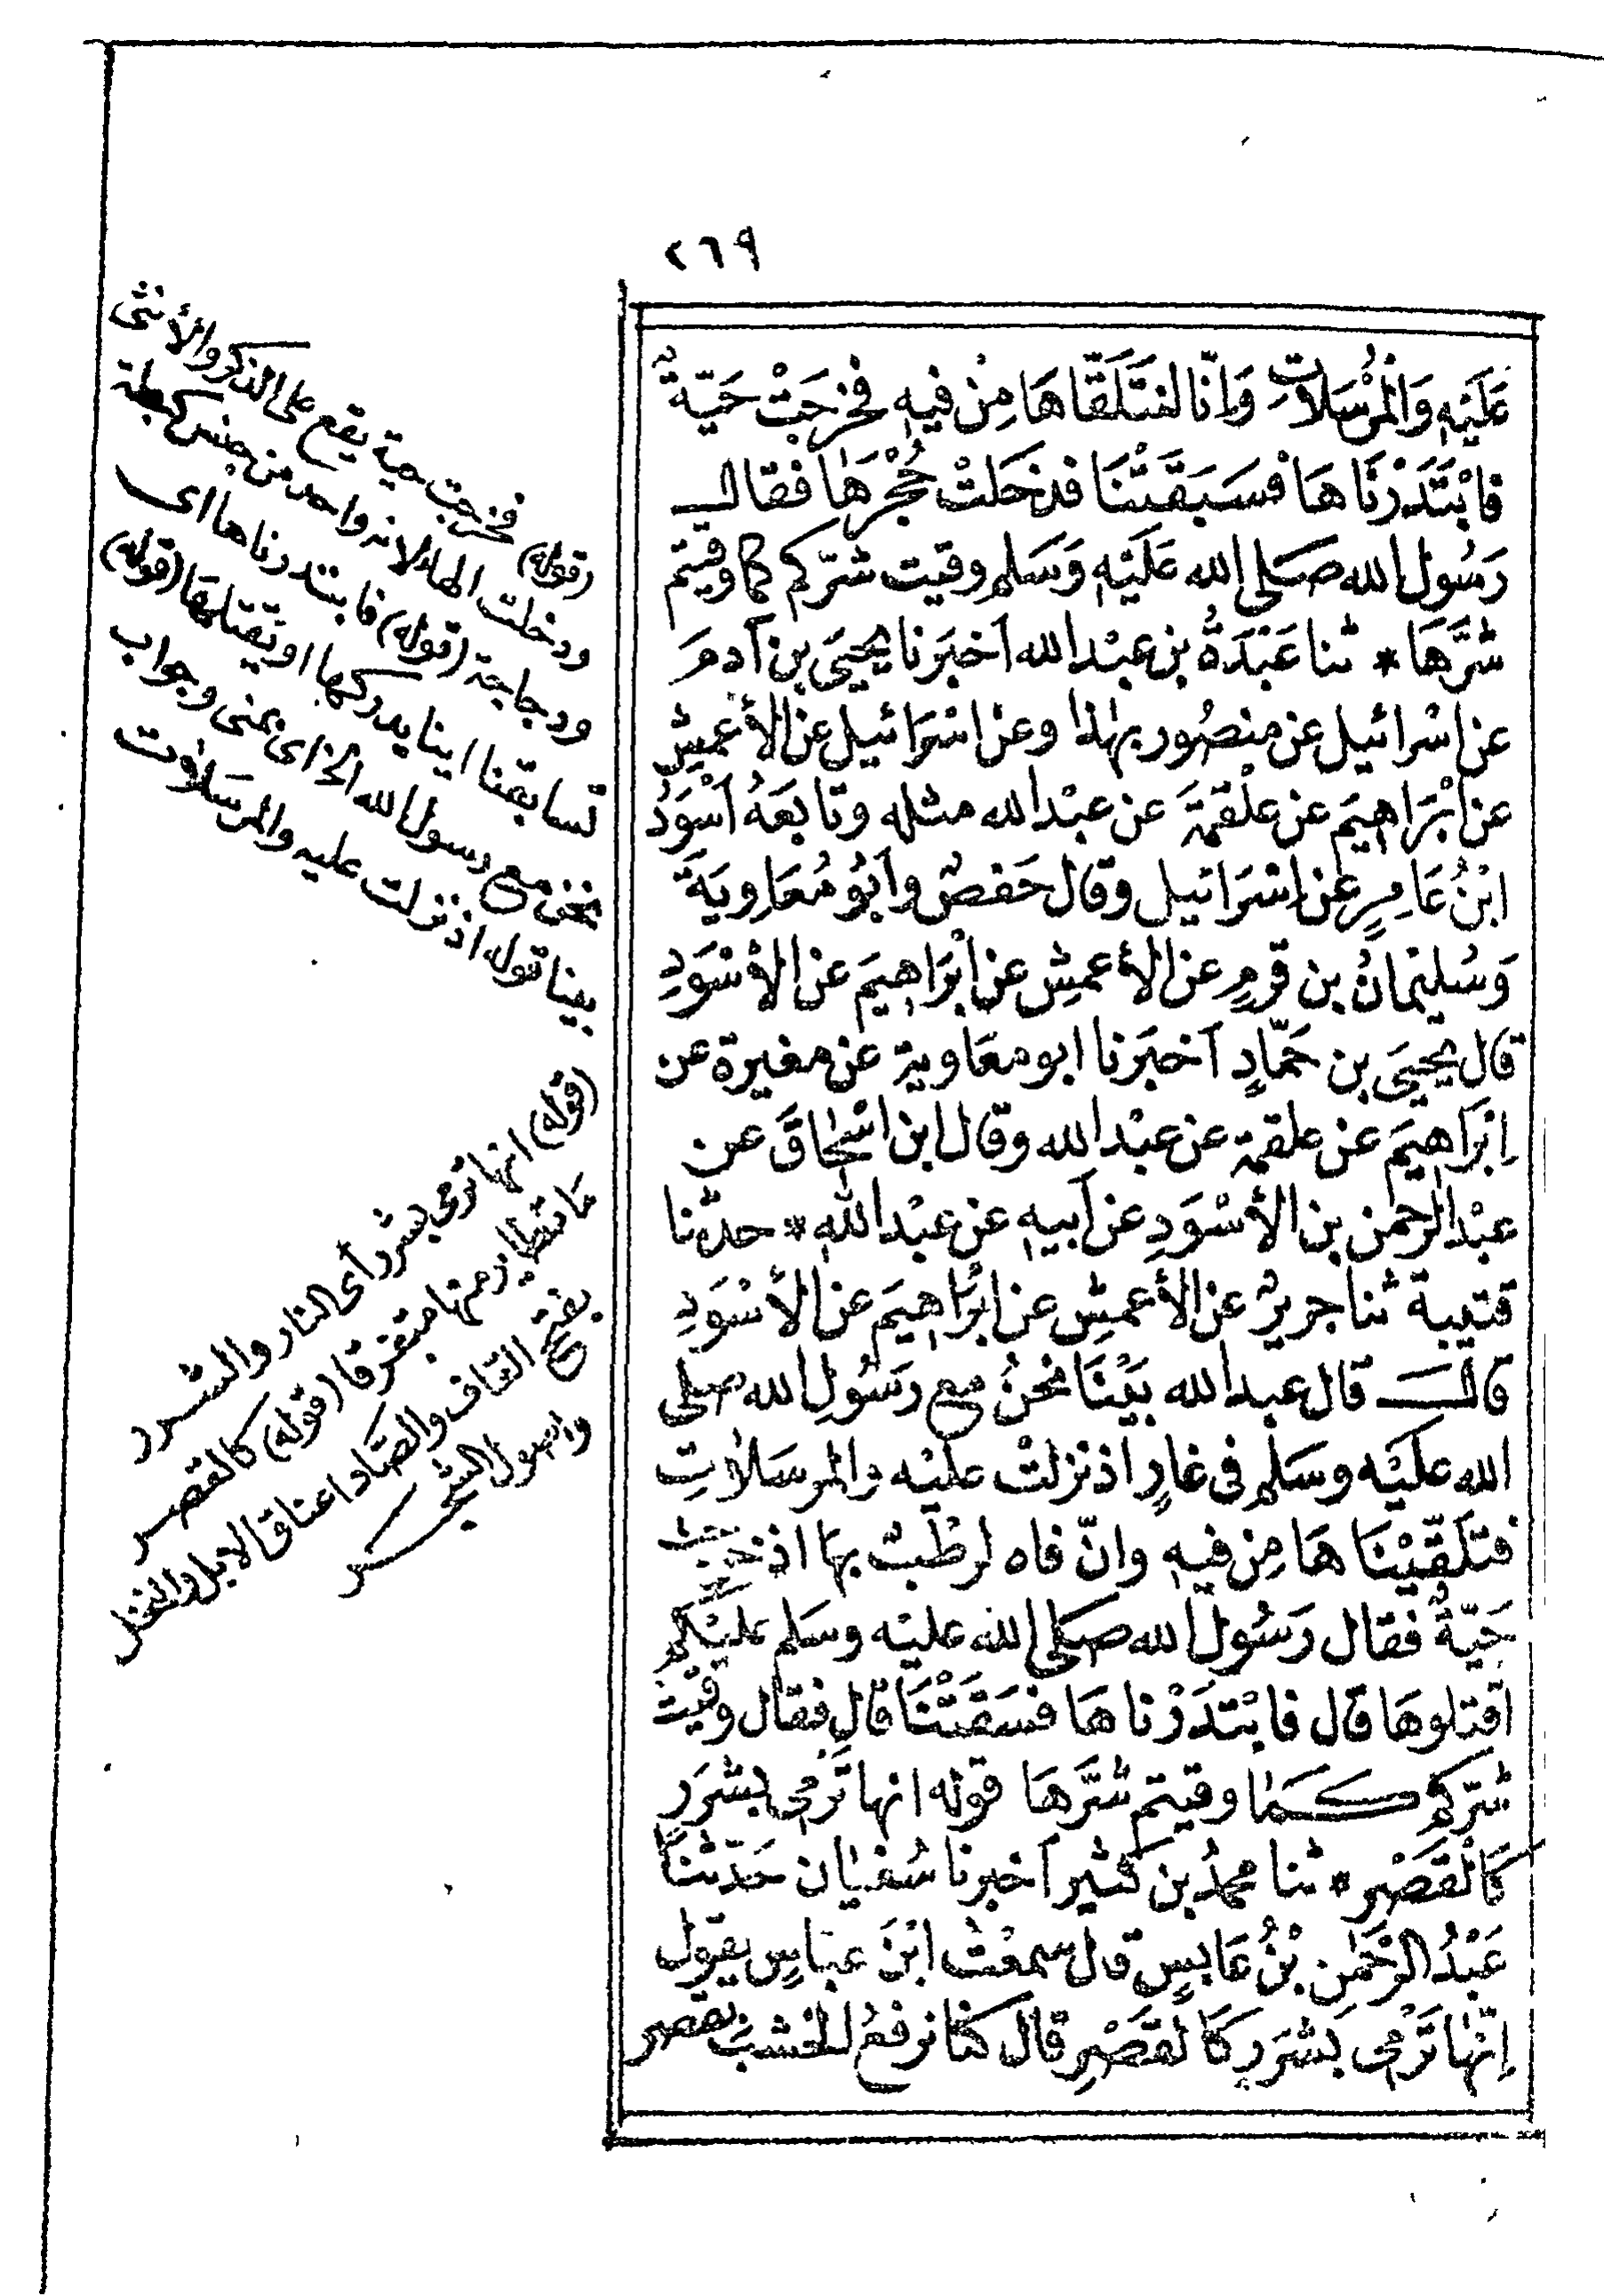 ٢٦٩
عَلَيْهِ وَالْمُرْسَلَاتِ وَاِنَّا لنَتَلَقَّاهَا مِنْ فيهِ فخرَجَتْ حَيَّةٌ
فابْتَدَرْنَاهَا فسَبَقَتْنَا فدَخَلَتْ جُحْرَهَا فقال
رَسُول الله صَلى الله عَلَيْهِ وَسَلم وقيت شرّكم كما وقيتم
شَرَّهَا * ثنا عَبْدَةُ بن عبْد الله اَخبَرنا يحيَى بن آدمَ
عن اسْرائيل عن منصُور بهٰذا وعن اسْرَائيل عن الأعمشِ
عن ابْرَاهِيمَ عن علْقمَةَ عن عبْد الله مثله وتابعَهُ اَسْوَدُ
ابْنُ عَامِرٍ عن اِسْرَائيل وقال حَفصٌ وابُو مُعَاوِيَةَ
وَسُليْمانُ بن قَرْمٍ عن الأعمشِ عن ابْرَاهِيمَ عن الأسْوَدِ
قال يحيَى بن حَمّادٍ اَخبَرنا ابو معَاوية عن مغيرة عن
اِبْرَاهِيمَ عن علقمة عن عبْد الله وقال ابن اسْحٰاقَ عن
عبْد الرحمن بن الأسْوَدِ عن اَبيهِ عن عبْد اللهِ * حدثنا
قتيبة ثنا جريرٌ عن الأعمشِ عن ابْرَاهِيمَ عن الأسْوَدِ
قال قال عبد الله بَيْنَا نحْنُ مع رَسُولِ الله صلى
الله عَليْه وسَلم فى غارٍ اذ نزلتْ عليْه والمرسَلاٰتِ
فتلَقّيْنَاهَا مِن فيهِ وانّ فاه لرطْبٌ بهَا اذ خرجت
حَيّةٌ فقال رَسُول الله صَلى الله عليْه وسَلم عليْكم
اقتلوهَا قال فابْتدَرْناهَا فسَبَقَتْنَا قال فقال وقيَتْ
شرّكم كَمٰا وقيتم شَرَّهَا قوله انها تَرْمى بشَرَر
كَالْقَصْرِ * ثنا محمدُ بن كثير اَخبرنا سُفيٰان حَدّثنَا
عَبْدُ الرَّحْمٰنِ بْنُ عَابسٍ قال سمعْتُ ابْنَ عبّاسٍ يقول
اِنّهٰا تَرْمى بشرَرٍ كَالقَصْرِ قال كنّا نرفعُ الخشبَ بقصر
(قوله) فخرجت حية يقع على الذكر والأنثى
ودخلت الهاء لانه واحد من جنس كبطة
ودجاجة (قوله) فابتدرناها اى
تسابقنا اينا يدركها او يقتلها (قوله)
نحن مع رسول الله الخ اى بمنى وجواب
بينا قوله اذ نزلت عليه والمرسَلاٰت
(قوله) انها ترمى بشرر أى النار والشرر
مَا تطاير منها متفرقا (قوله) كالقصر
بفتح القاف والصّاد اعناق الابل والنخل
واصول الشجر